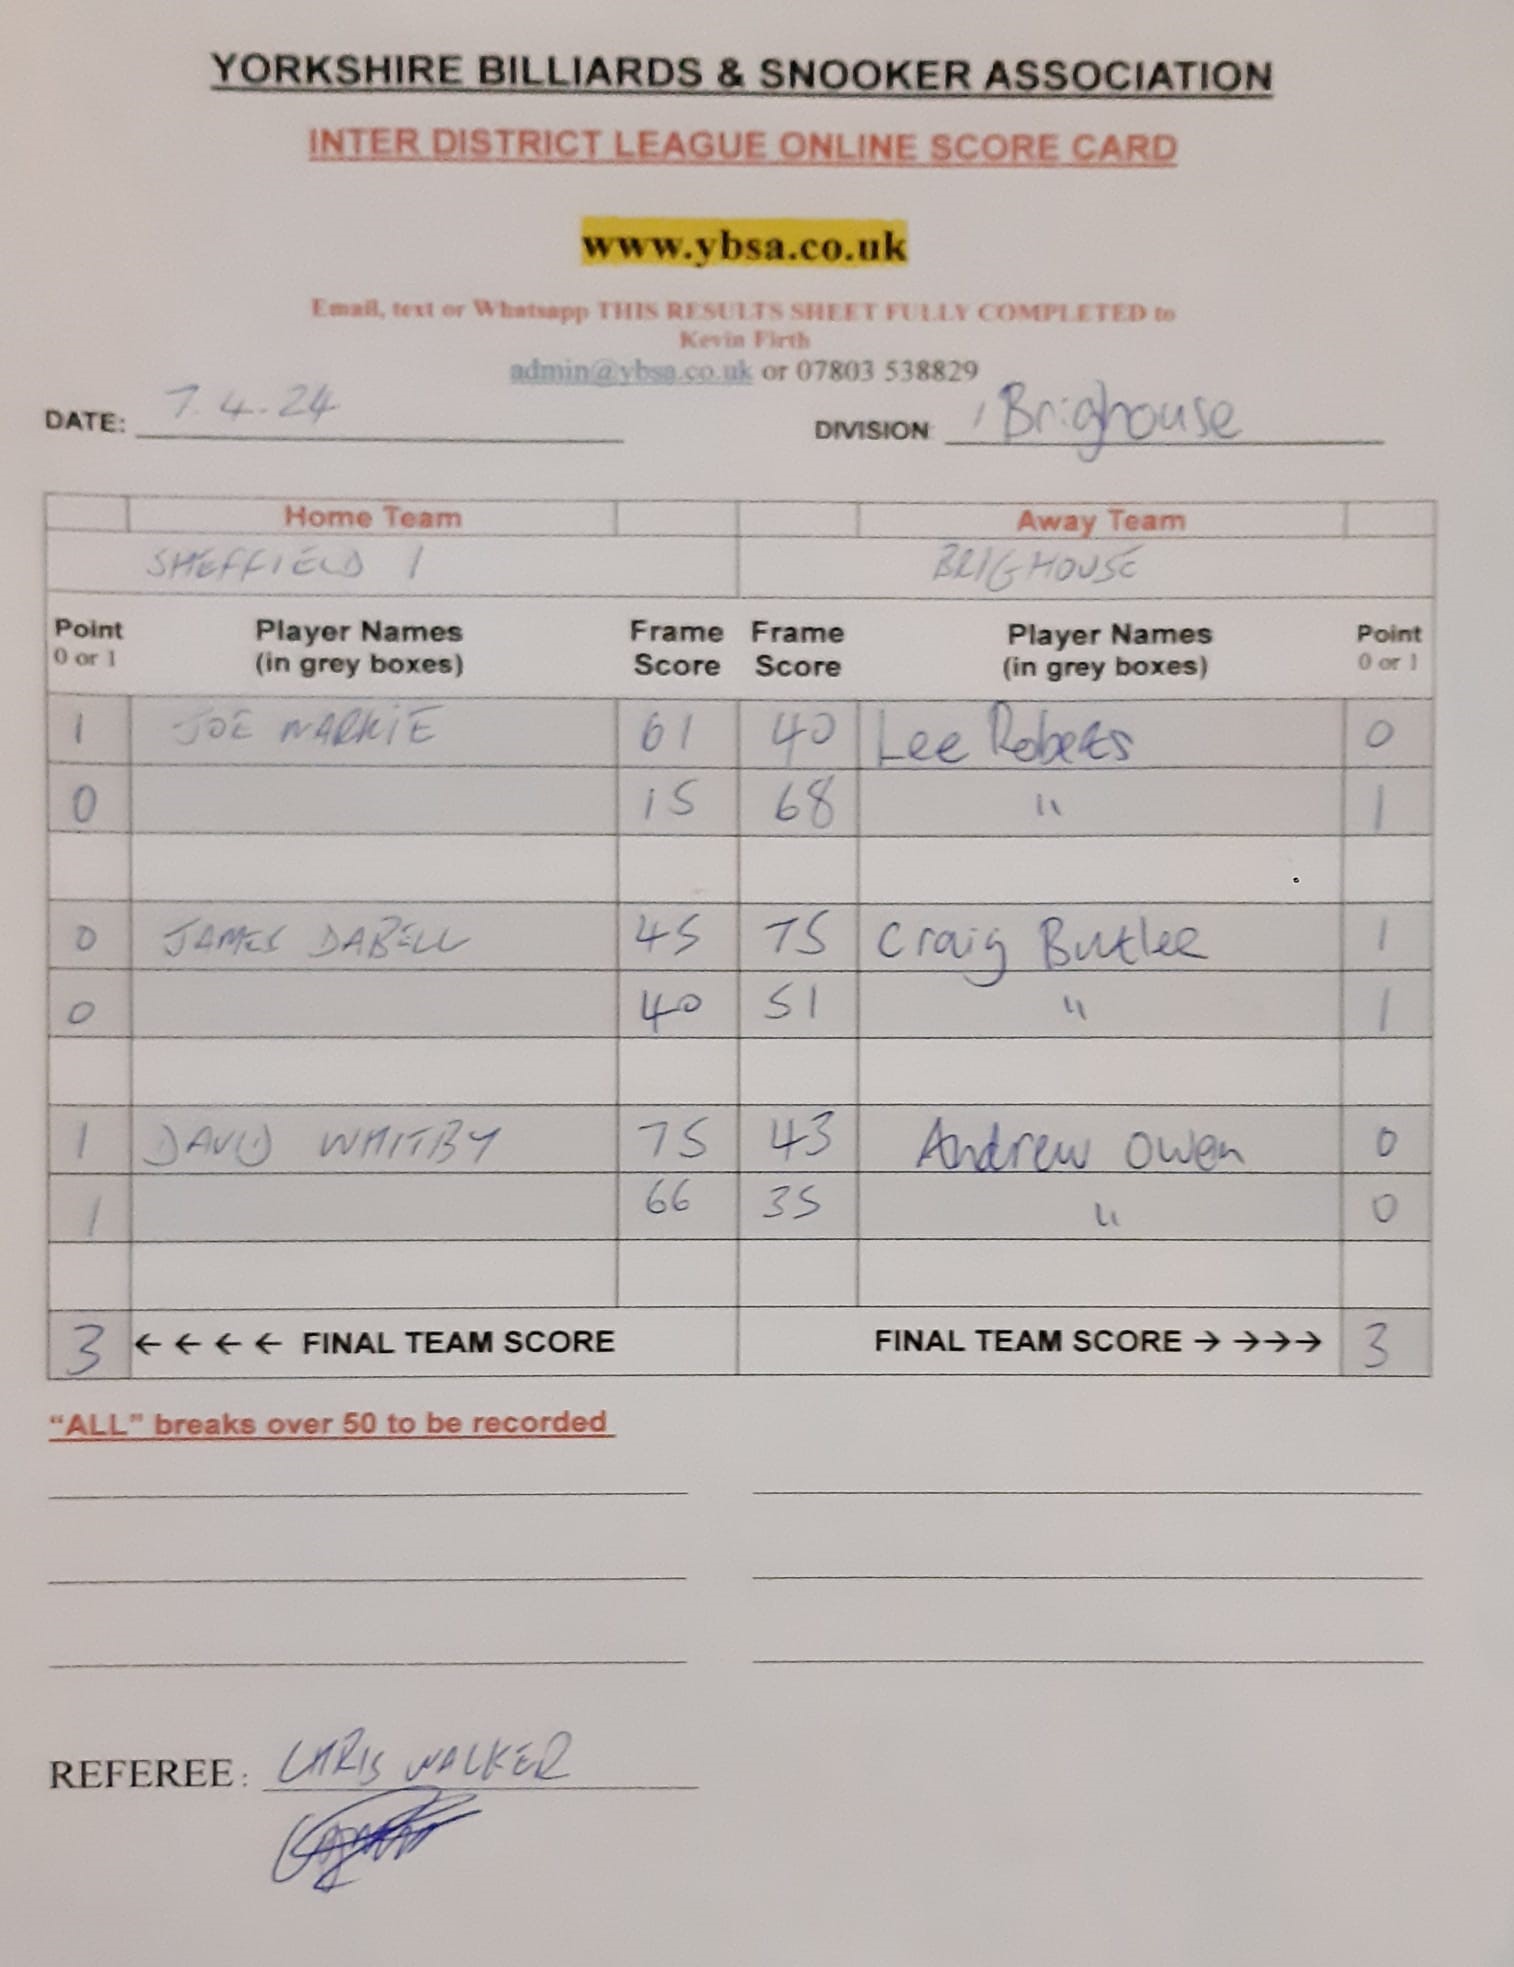 YORKSHIRE BILLIARDS & SNOOKER ASSOCIATION
INTER DISTRICT LEAGUE ONLINE SCORE CARD
www.ybsa.co.uk
Email, text or Whatsapp THIS RESULTS SHEET FULLY COMPLETED to
Kevin Firth
admin@ybsa.co.uk or 07803 538829
DATE: 7.4.24 DIVISION 1 Brighouse
Home Team Away Team
SHEFFIELD 1 BRIGHOUSE
Point Player Names Frame Frame Player Names Point
0 or 1 (in grey boxes) Score Score (in grey boxes) 0 or 1
1 JOE 61 40 Lee Roberts 0
0 15 68 " 1
0 JAMES DABELL 45 75 Craig Butler 1
0 40 51 " 1
1 DAVID WHITBY 75 43 Andrew Owen 0
1 66 35 " 0
3 ← ← ← ← FINAL TEAM SCORE FINAL TEAM SCORE → →→→ 3
"ALL" breaks over 50 to be recorded
REFEREE: CHRIS WALKER